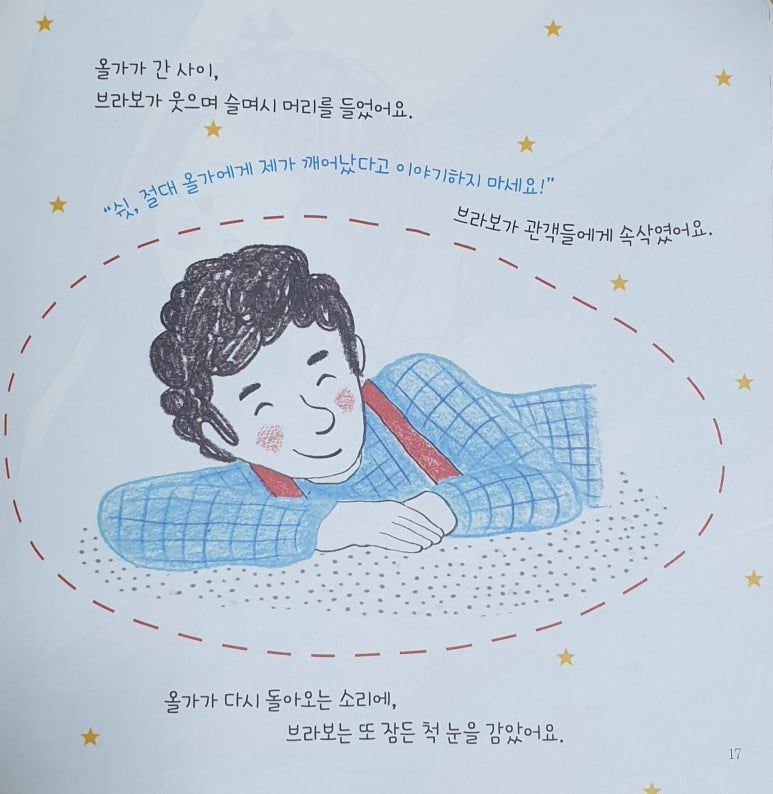 올가가 간 사이,
브라보가 웃으며 슬며시 머리를 들었어요.
“쉿, 절대 올가에게 제가 깨어났다고 이야기하지 마세요!”
브라보가 관객들에게 속삭였어요.
올가가 다시 돌아오는 소리에,
브라보는 또 잠든 척 눈을 감았어요.
17